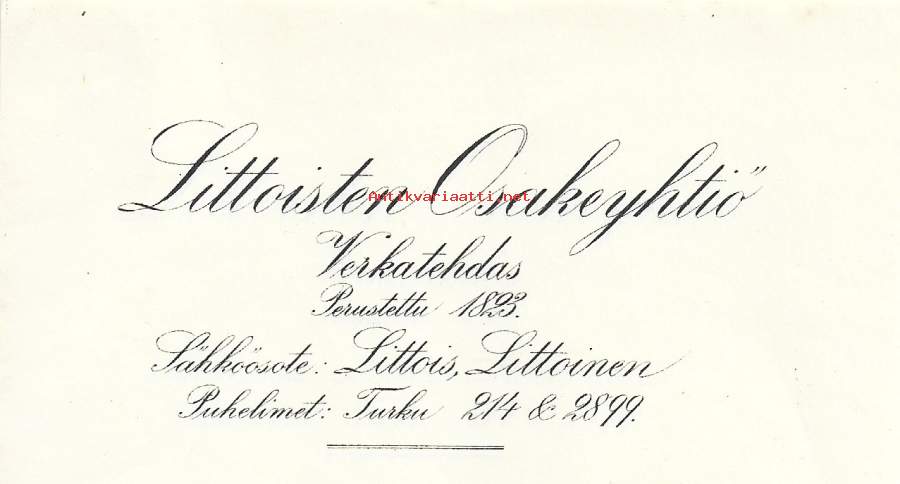 Littoisten Osakeyhtiö
Antikvariaatti.net
Verkatehdas
Perustettu 1823.
Sähköosote: Littois, Littoinen
Puhelimet: Turku 214 & 2899.